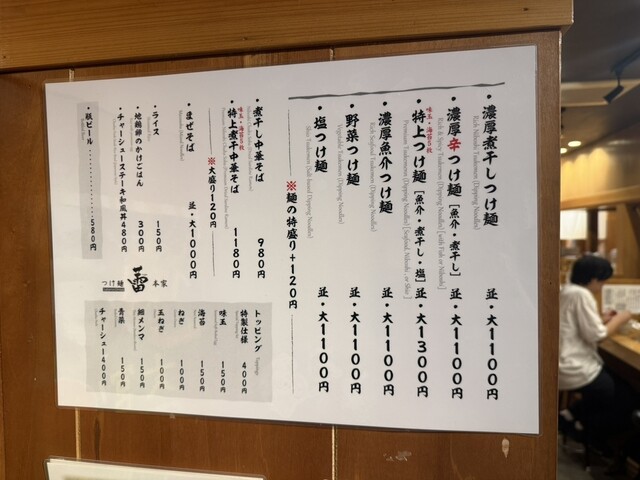 ・濃厚煮干しつけ麺 並・大1100円
Rich Niboshi Tsukemen (Dipping Noodles)
・濃厚辛つけ麺 [魚介・煮干し] 並・大1100円
Rich & Spicy Tsukemen (Dipping Noodles) [with Fish or Niboshi]
味玉・海苔5枚
・特上つけ麺 [魚介・煮干し・塩] 並・大1300円
Premium Tsukemen (Dipping Noodles) [Seafood, Niboshi, or Shio]
・濃厚魚介つけ麺 並・大1100円
Rich Seafood Tsukemen (Dipping Noodles)
・野菜つけ麺 並・大1100円
Vegetable Tsukemen (Dipping Noodles)
・塩つけ麺 並・大1100円
Shio Tsukemen (Salt-based Dipping Noodles)
※麺の特盛り+120円
・煮干し中華そば 980円
味玉・海苔5枚
・特上煮干中華そば 1180円
※大盛り120円
・まぜそば 並・大1000円
・ライス 150円
・地鶏卵のかけごはん 300円
・チャーシューステーキ和風丼 480円
・瓶ビール 580円
つけ麺 雷 本家
トッピング
特製仕様 400円
味玉 150円
海苔 150円
ねぎ 100円
玉ねぎ 100円
細メンマ 150円
青菜 150円
チャーシュー 400円